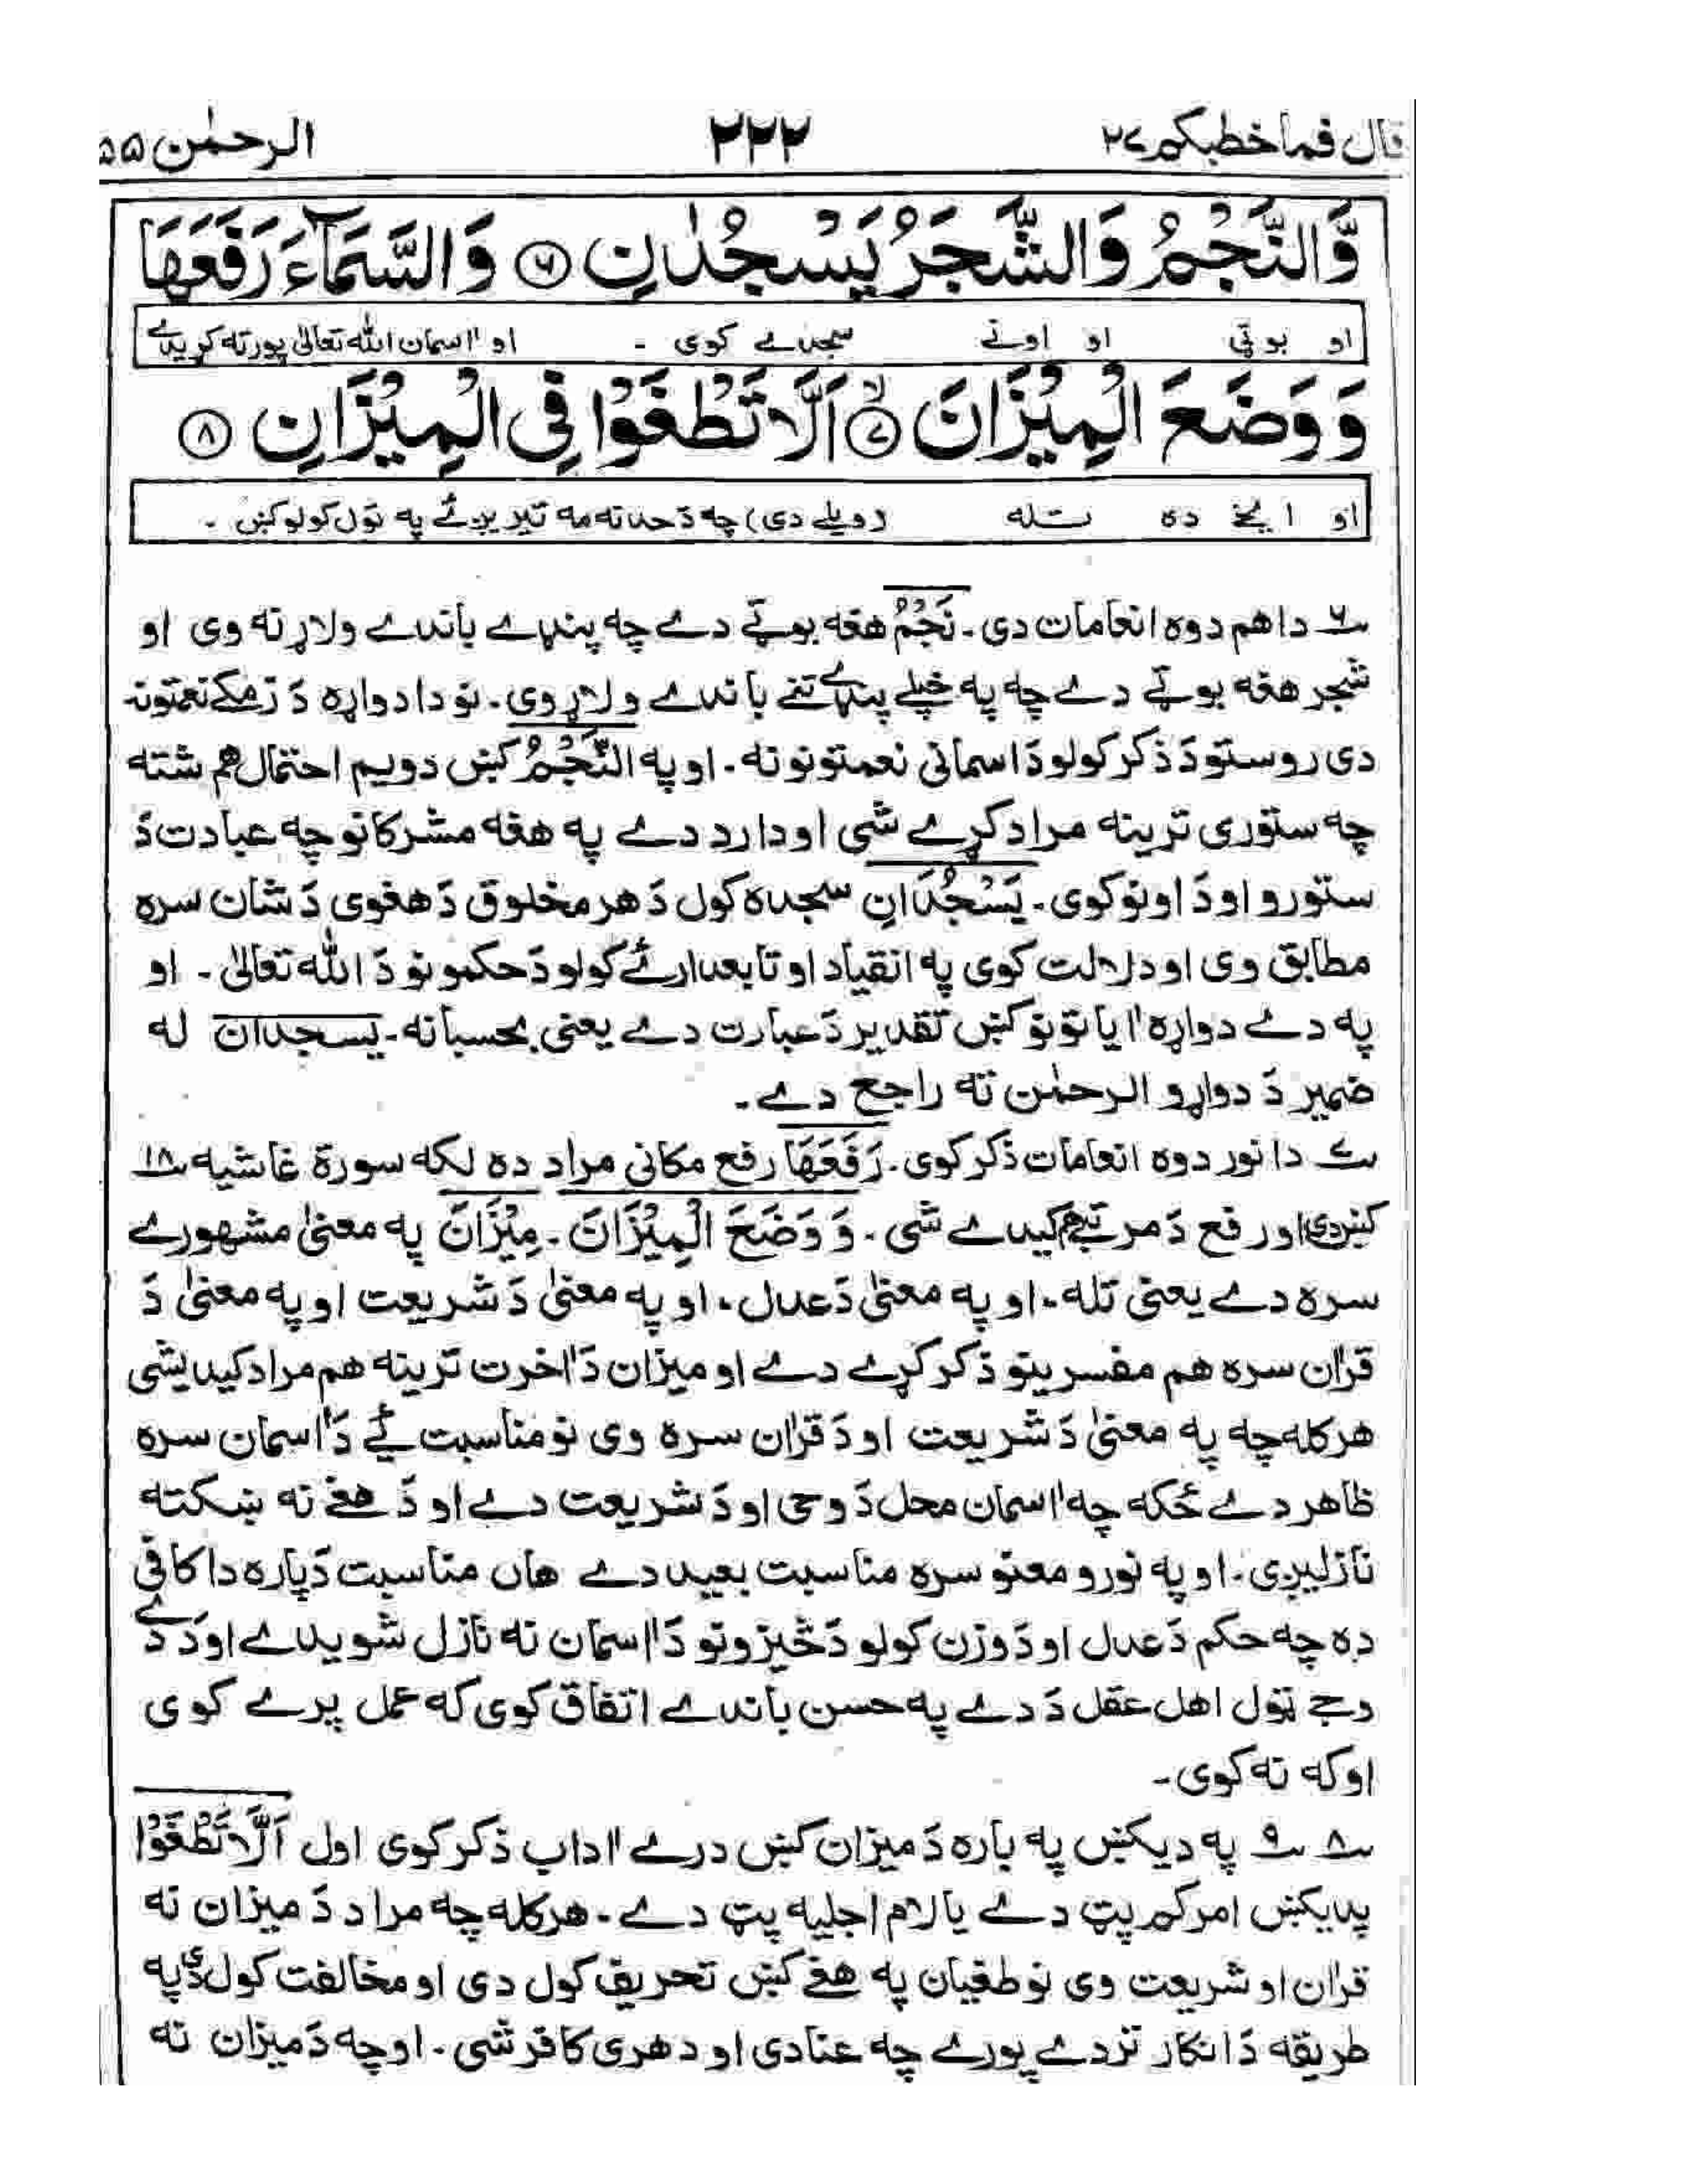 قال فما خطبكم ٢٧ ٢٢٢ الرحمٰن ٥٥
وَّالنَّجْمُ وَالشَّجَرُ يَسْجُدٰنِ ﴿٦﴾ وَالسَّمَآءَ رَفَعَهَا
او بوټي او اونے سجدے کوی ۔ او اٰسمان الله تعالیٰ پورته کړیدے
وَوَضَعَ الْمِيْزَانَ ﴿٧﴾ اَلَّا تَطْغَوْا فِى الْمِيْزَانِ ﴿٨﴾
او ایخے ده تله (ویلے دی) چه دَ حد نه مه تیریږئ په تول کولو کښ ۔
٦ دا هم دوه انعامات دی ۔ نَجْمُ هغه بوټے دے چه پنډے باندے ولاړ نه وی او
شجر هغه بوټے دے چه په خپلے پنډے تنے باندے ولاړ وی ۔ نو دا دواړه دَ زمکے نعمتونه
دی روستو دَ ذکر کولو دَ اسمانی نعمتونو نه ۔ او په النَّجْمُ کښ دویم احتمال هم شته
چه ستوری ترینه مراد کړے شی او دا رد دے په هغه مشرکانو چه عبادت دَ
ستورو او دَ اونو کوی ۔ يَسْجُدَانِ سجده کول دَ هر مخلوق دَ هغوی دَ شان سره
مطابق وی او دلالت کوی په انقیاد او تابعدارئ کولو دَ حکمونو دَ الله تعالیٰ ۔ او
په دے دواړه اٰیاتونو کښ تقدیر دَ عبارت دے یعنی بحسبانه ۔ یسجدان له
ضمیر دَ دواړو الرحمٰن ته راجع دے ۔
٧ دا نور دوه انعامات ذکر کوی ۔ رَفَعَهَا رفع مکانی مراد ده لکه سورة غاشیه ١٨
کښ دی او رفع دَ مرتبے هم کیدے شی ۔ وَوَضَعَ الْمِيْزَانَ ۔ مِيْزَانَ په معنیٰ مشهورے
سره دے یعنی تله ۔ او په معنیٰ دَ عدل ۔ او په معنیٰ دَ شریعت او په معنیٰ دَ
قراٰن سره هم مفسرینو ذکر کړے دے او میزان دَ اٰخرت ترینه هم مراد کیدیشی
هرکله چه په معنیٰ دَ شریعت او دَ قراٰن سره وی نو مناسبت ئے دَ اٰسمان سره
ظاهر دے ځکه چه اٰسمان محل دَ وحی او دَ شریعت دے او دَ هغے نه ښکته
نازلیږی ۔ او په نورو معنو سره مناسبت بعید دے هاں مناسبت دَپاره دا کافی
ده چه حکم دَ عدل او دَ وزن کولو دَ څیزونو دَ اٰسمان نه نازل شویدے او دَ دے
وجے ټول اهل عقل دَ دے په حسن باندے اتفاق کوی که عمل پرے کوی
او که نه کوی ۔
٨ ٩ په دیکښ په باره دَ میزان کښ درے اٰداب ذکر کوی اول اَلَّا تَطْغَوْا
پدیکښ امرکم پټ دے یا لام اجلیه پټ دے ۔ هرکله چه مراد دَ میزان نه
قراٰن او شریعت وی نو طغیان په هغے کښ تحریف کول دی او مخالفت کول دی په
طریقه دَ انکار تردے پورے چه عنادی او دهری کافر شی ۔ او چه دَ میزان نه